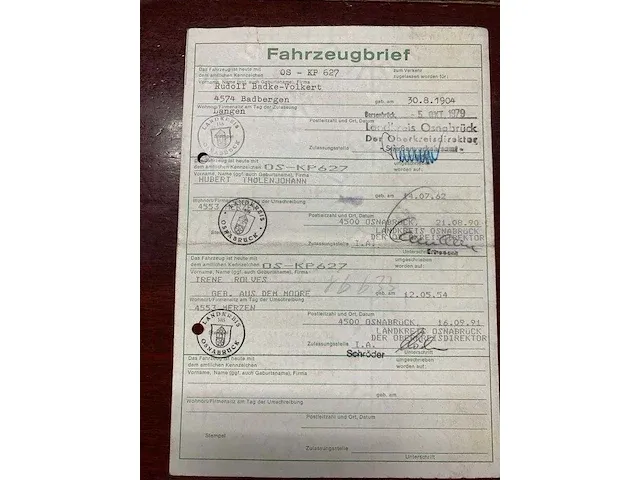 Fahrzeugbrief
Das Fahrzeug ist heute mit
dem amtlichen Kennzeichen OS - KP 627 zum Verkehr
zugelassen worden für:
Vorname, Name (ggf. auch Geburtsname), Firma
Rudolf Badke-Volkert
4574 Badbergen geb. am 30.8.1904
Wohnort/Firmensitz am Tag der Zulassung
Langen Bersenbrück, - 5. OKT. 1979
Postleitzahl und Ort, Datum
Landkreis Osnabrück
Der Oberkreisdirektor
Zulassungsstelle - Straßenverkehrsamt -
Das Fahrzeug ist heute mit
dem amtlichen Kennzeichen OS-KP627 umgeschrieben
worden auf:
Vorname, Name (ggf. auch Geburtsname), Firma
HUBERT TROLENJOHANN
geb. am 14.07.62
Wohnort/Firmensitz am Tag der Umschreibung
4553
Postleitzahl und Ort, Datum 4500 OSNABRÜCK, 21.08.90
LANDKREIS OSNABRÜCK
DER OBERKREISDIREKTOR
Zulassungsstelle I.A. Unterschrift
LANDKREIS
OSNABRÜCK
Das Fahrzeug ist heute mit
dem amtlichen Kennzeichen OS-KP627 umgeschrieben
worden auf:
Vorname, Name (ggf. auch Geburtsname), Firma
IRENE ROLVES
GEB. AUS DEM MOORE geb. am 12.05.54
Wohnort/Firmensitz am Tag der Umschreibung
4553 MERZEN
Postleitzahl und Ort, Datum 4500 OSNABRÜCK, 16.09.91
LANDKREIS OSNABRÜCK
DER OBERKREISDIREKTOR
Zulassungsstelle I.A. Unterschrift
Schröder
LANDKREIS
OSNABRÜCK
Das Fahrzeug ist heute mit
dem amtlichen Kennzeichen umgeschrieben
worden auf:
Vorname, Name (ggf. auch Geburtsname), Firma
geb. am
Wohnort/Firmensitz am Tag der Umschreibung
Postleitzahl und Ort, Datum
Stempel
Zulassungsstelle
Unterschrift